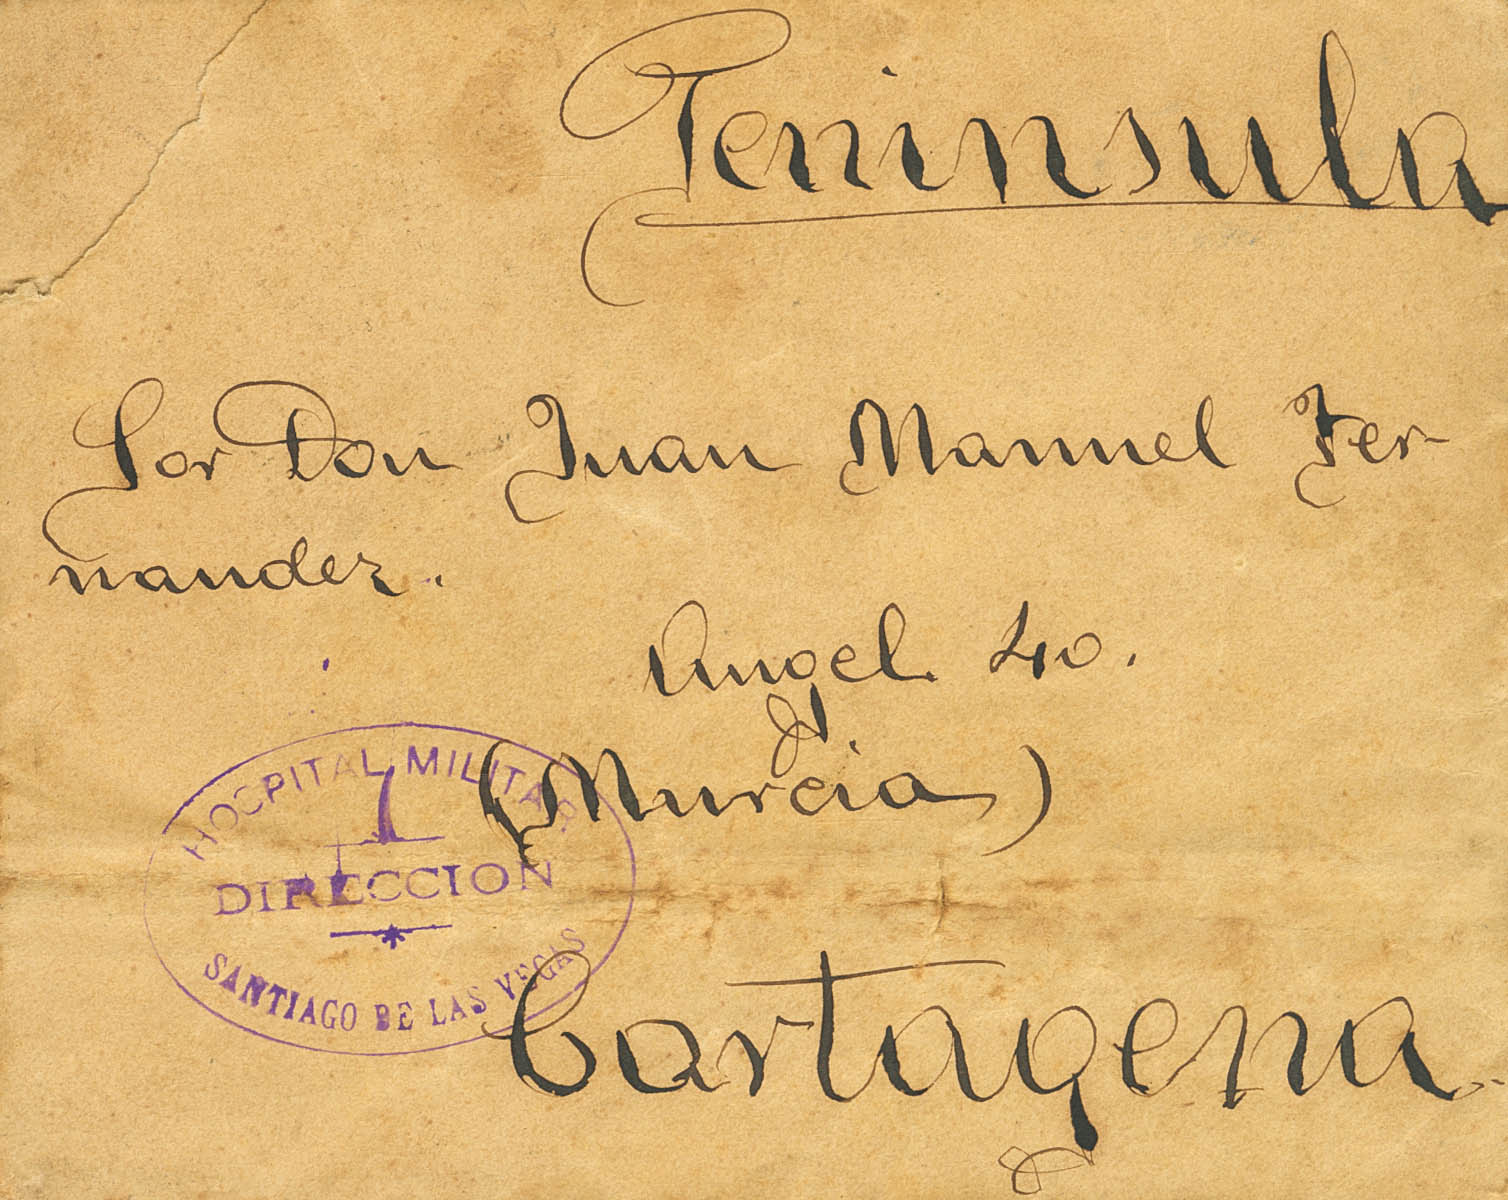 Peninsula
Sor Don Juan Manuel Fer-
nandez.
Angel. 40.
(Murcia)
Cartagena.
HOSPITAL MILITAR
DIRECCION
SANTIAGO DE LAS VEGAS